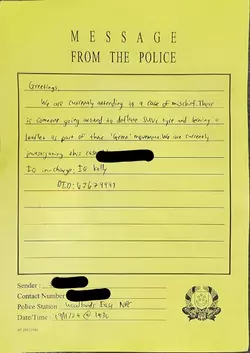 MESSAGE
FROM THE POLICE
Greetings,
We are currently attending to a case of mischief. There
is someone going around to deflate SUVs tyre and leaving a
leaflet as part of their 'Green' movement. We are currently
investigating this case
IO in-charge: IO Kelly
DID: 67674447
Sender :
Contact Number
Police Station : Woodlands East NPC
Date/Time : 19/1/24 @ 1430